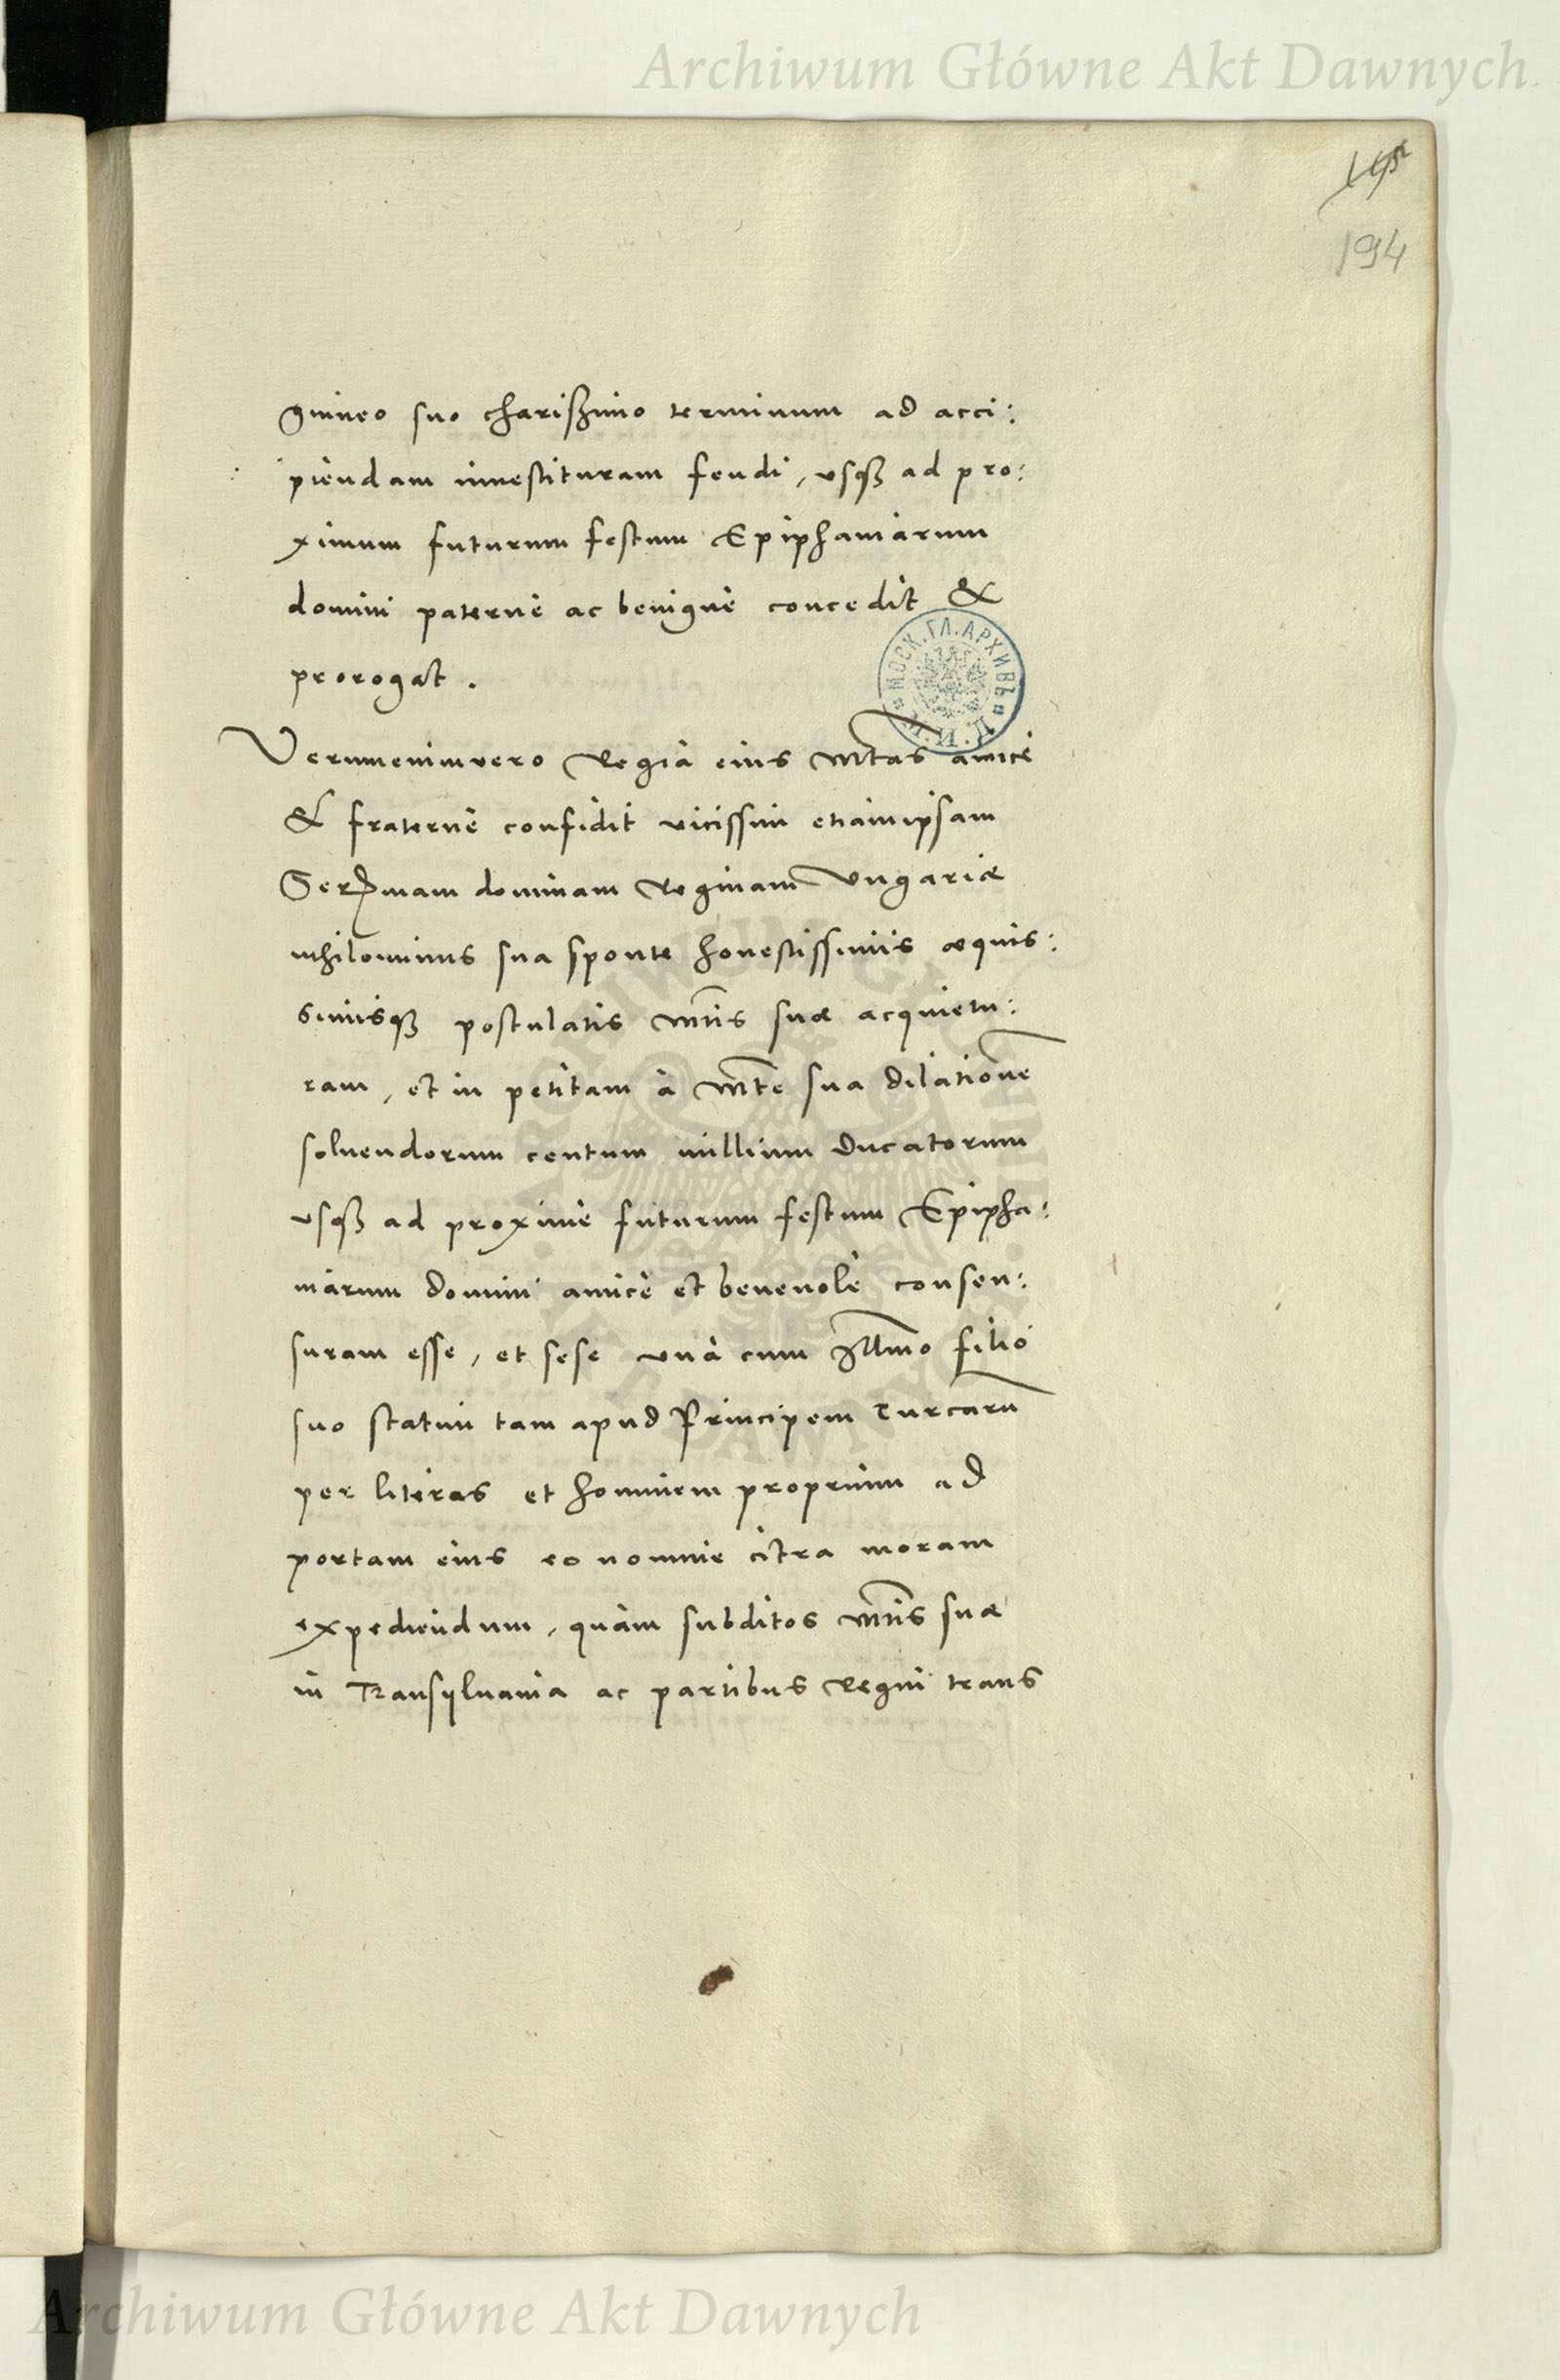 Archiwum Główne Akt Dawnych
194
guineo suo charißimo terminum ad acci:
piendam inuestituram feudi, vsqꝫ ad pro:
ximum futurum festum Epiphaniarum
domini paternè ac benignè concedit &
prorogat.
МОСК. ГЛ. АРХИВЪ М. И. Д.
Verumenimvero Regia eius Mtas amicè
& fraternè confidit vicissim etiam ipsam
Serᵐmam dominam Reginam Vngariæ
nihilominus sua sponte honestissimis æquis:
simisqꝫ postulatis Mtis suæ acquietu:
ram, et in petitam à Mte sua dilationē
soluendorum centum millium Ducatorum
vsqꝫ ad proximè futurum festum Epipha:
niarum Domini amicè et beneuolè consen:
suram esse, et sese vnà cum Illmo filio
suo statim tam apud Principem Turcarū
per literas et hominem proprium ad
portam eius eo nomine citra moram
expediendum, quàm subditos Mtis suæ
in Transyluania ac partibus Regni trans
Archiwum Główne Akt Dawnych